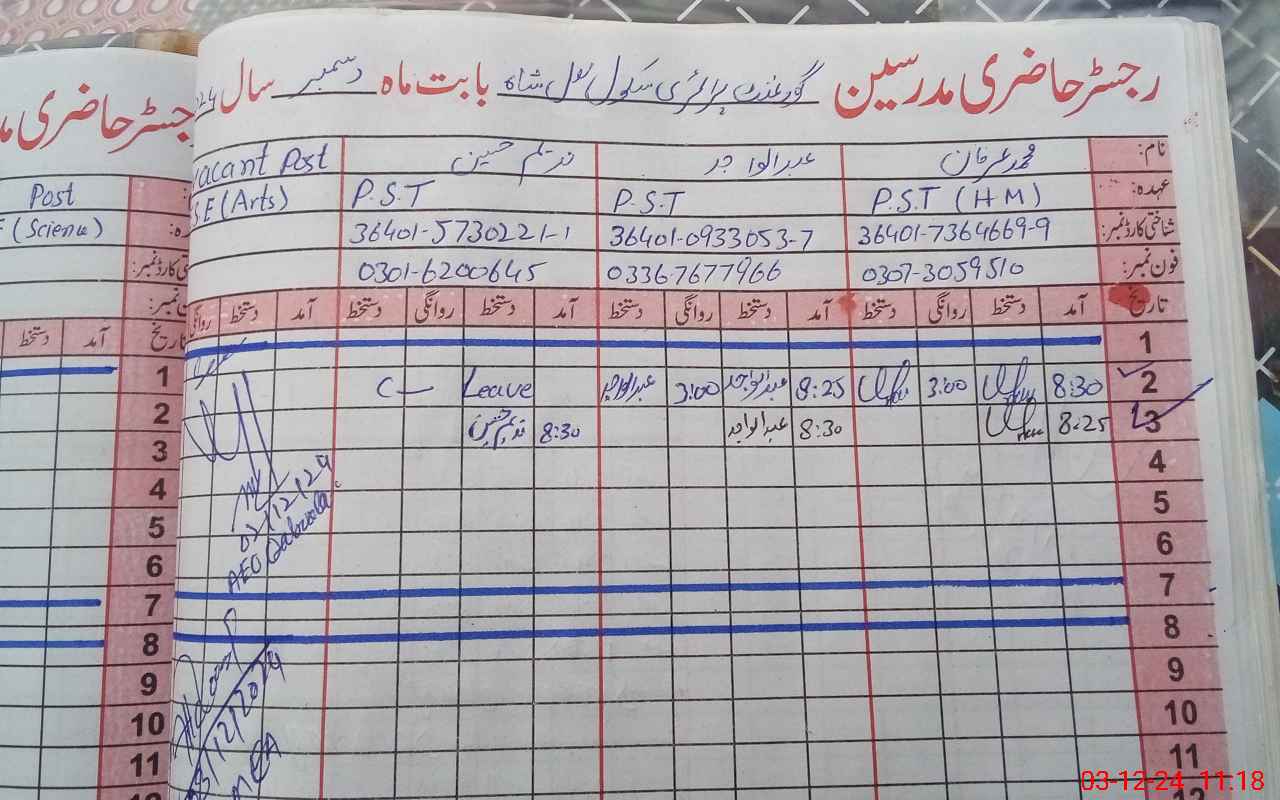 رجسٹر حاضری مدرسین گورنمنٹ پرائمری سکول شاہ بابت ماہ دسمبر سال
نام: محمد عرفان عبدالواجد ندیم حسین vacant Post
عہدہ: P.S.T (HM) P.S.T P.S.T SE (Arts)
شناختی کارڈ نمبر: 36401-7364669-9 36401-0933053-7 36401-5730221-1
فون نمبر: 0307-3059510 0336-7677966 0301-6200645
تاریخ آمد دستخط روانگی دستخط آمد دستخط روانگی دستخط آمد دستخط روانگی دستخط آمد دستخط روانگی
1
2 8:30 3:00 8:25 عبدالواجد 3:00 عبدالواجد Leave C—
3 8:25 8:30 عبدالواجد 8:30 ندیم حسین
4
5
6
7
8
9
10
11
12
02/12/24
AEO
03/12/2024
MEA
جسٹر حاضری
Post
(Science)
تاریخ آمد دستخط
1
2
3
4
5
6
7
8
9
10
11
03-12-24 11:18